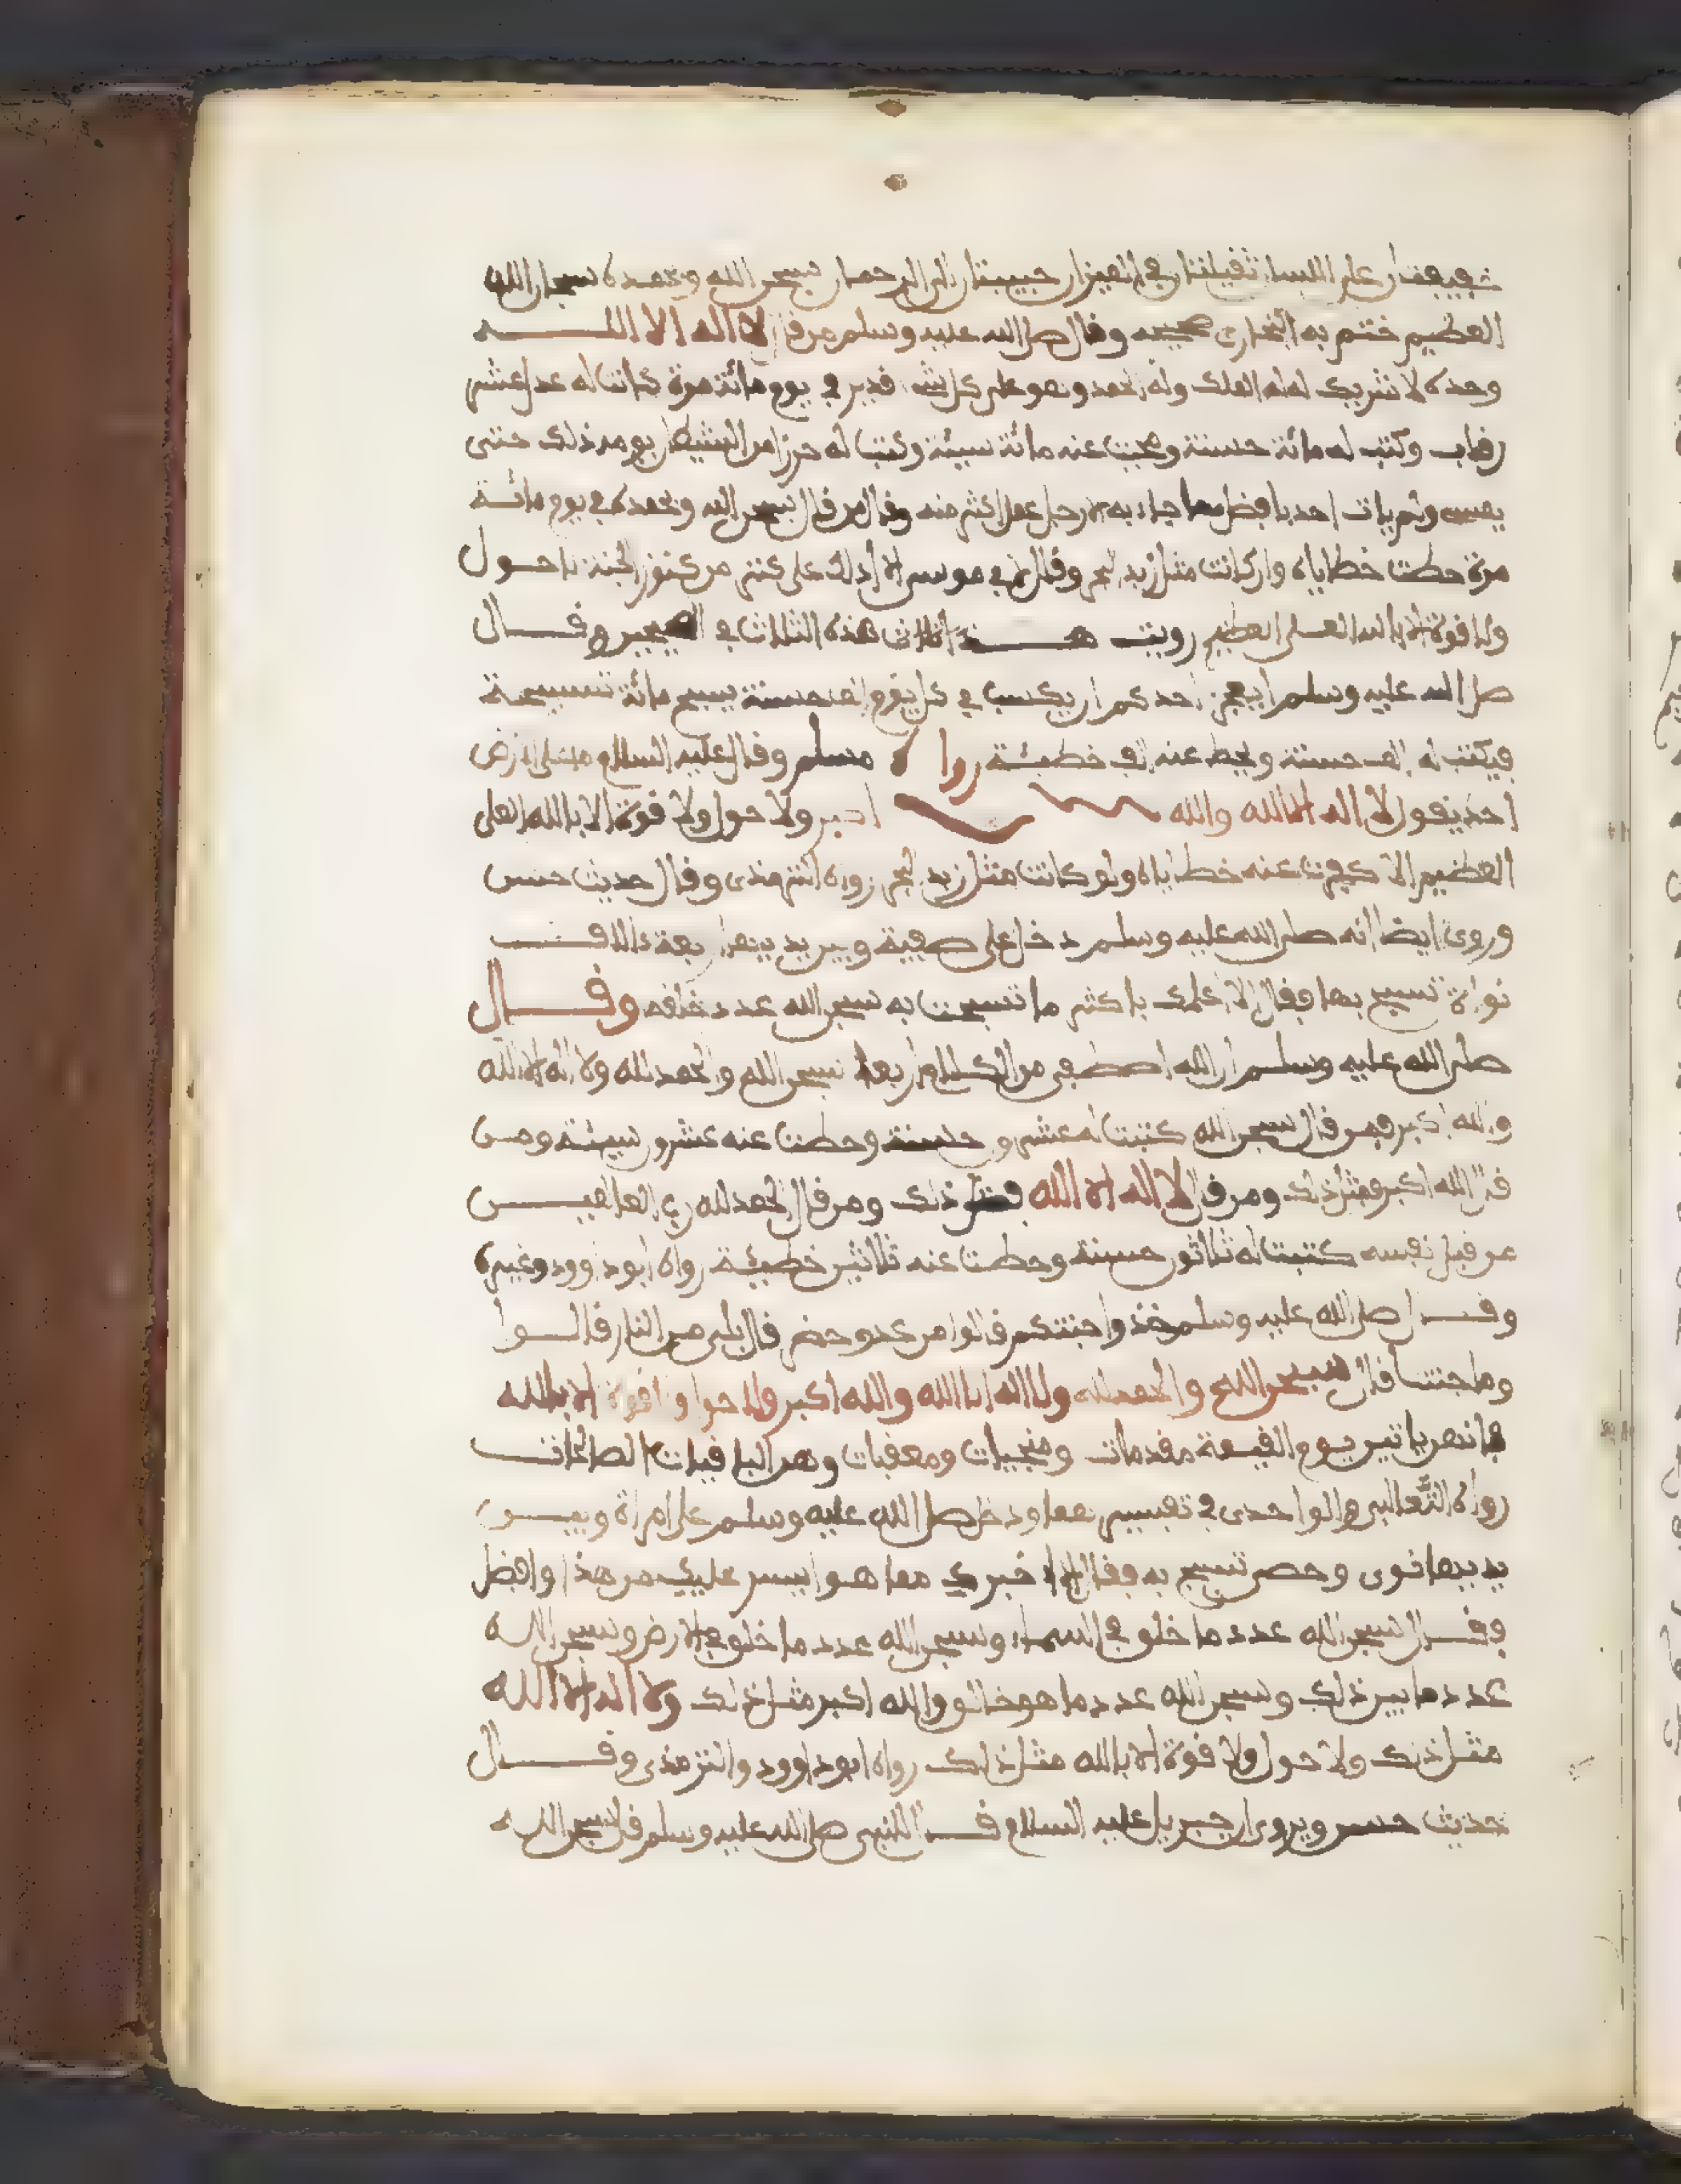 خفيفتان على اللسان ثقيلتان في الميزان حبيبتان الى الرحمان سبحن الله وبحمده سبحان الله
العظيم ختم به البخاري صحيحه وقال صلى الله عليه وسلم من قال لا اله الا الله
وحده لا شريك له له الملك وله الحمد وهو على كل شيء قدير في يوم مائة مرة كانت له عدل عشر
رقاب وكتب له مائة حسنة ومحيت عنه مائة سيئة وكتب له حرزا من الشيطان يومه ذلك حتى
يمسى ولم يات احد بافضل مما جاء به الا رجل عمل اكثر منه وقال من قال سبحن الله وبحمده في يوم مائة
مرة حطت خطاياه وان كانت مثل زبد البحر وقال لابي موسى الا ادلك على كنز من كنوز الجنة لا حول
ولا قوة الا بالله العلى العظيم رويت هذه الثلاث في الصحيحين وقال
صلى الله عليه وسلم ايعجز احدكم ان يكسب في كل يوم الف حسنة يسبح مائة تسبيحة
فيكتب له الف حسنة ويحط عنه الف خطيئة رواه مسلم وقال عليه السلام ما على الارض
احد يقول لا اله الا الله والله اكبر ولا حول ولا قوة الا بالله العلى
العظيم الا كفرت عنه خطاياه ولو كانت مثل زبد البحر رواه الترمذى وقال حديث حسن
وروى ايضا انه صلى الله عليه وسلم دخل على صفية وبين يديها اربعة ءالاف
نواة تسبح بها فقال الا اعلمك باكثر ما تسبحت به سبحن الله عدد خلقه وقال
صلى الله عليه وسلم ان الله اصطفى من الكلام اربعا سبحن الله والحمد لله ولا اله الا الله
والله اكبر فمن قال سبحن الله كتبت له عشرون حسنة وحطت عنه عشرون سيئة ومن
قال الله اكبر فمثل ذلك ومن قال لا اله الا الله فمثل ذلك ومن قال الحمد لله رب العالمين
من قبل نفسه كتبت له ثلاثون حسنة وحطت عنه ثلاثين خطيئة رواه ابو داوود وغيره
وقال صلى الله عليه وسلم خذوا جنتكم قالوا من عدو حضر قال بلى من النار قالوا
وما جنتنا قال سبحن الله والحمد لله ولا اله الا الله والله اكبر ولا حول ولا قوة الا بالله
فانهن ياتين يوم القيمة مقدمات ومنجيات ومعقبات وهن الباقيات الصالحات
رواه الثعالبي والواحدى في تفسيرهما ودخل صلى الله عليه وسلم على امراة وبين
يديها نوى وحصى تسبح به فقال الا اخبرك بما هو ايسر عليك من هذا وافضل
وقال سبحن الله عدد ما خلق في السماء وسبحن الله عدد ما خلق في الارض وسبحن الله
عدد ما بين ذلك وسبحن الله عدد ما هو خالق والله اكبر مثل ذلك ولا اله الا الله
مثل ذلك ولا حول ولا قوة الا بالله مثل ذلك رواه ابو داوود والترمذى وقال
حديث حسن ويروى ان جبريل عليه السلام قال للنبي صلى الله عليه وسلم قل سبحن الله